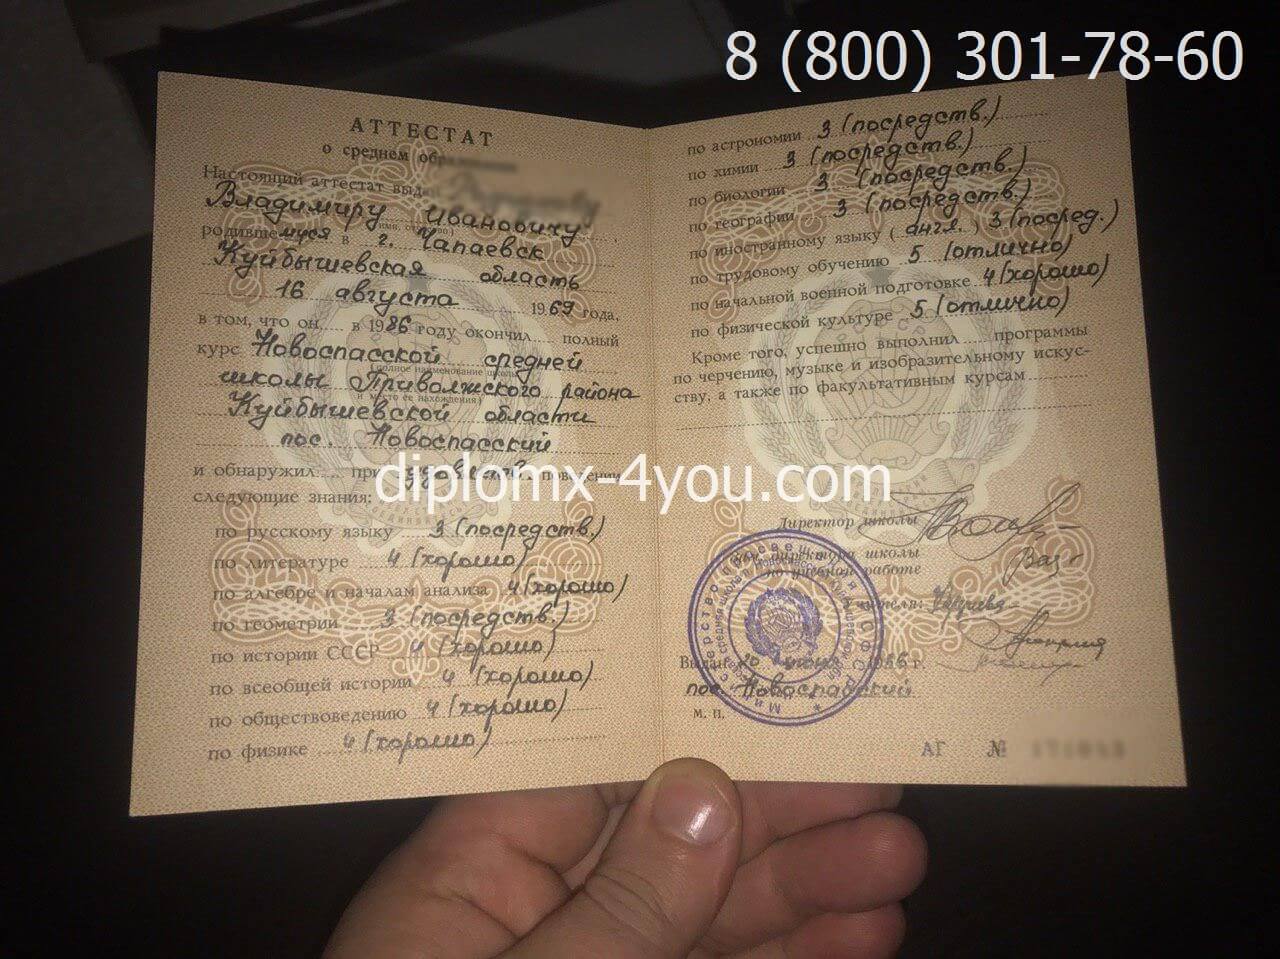 8 (800) 301-78-60
АТТЕСТАТ
о среднем
Настоящий аттестат выдан
Владимиру Ивановичу,
родившемуся в г. Чапаевск
Куйбышевская область
16 августа 1969 года,
в том, что он в 1986 году окончил полный
курс Новоспасской средней
школы Приволжского района
Куйбышевской области
пос. Новоспасский
и обнаружил при поведении
следующие знания:
diplomx-4you.com
по русскому языку 3 (посредств.)
по литературе 4 (хорошо)
по алгебре и началам анализа 4 (хорошо)
по геометрии 3 (посредств.)
по истории СССР 4 (хорошо)
по всеобщей истории 4 (хорошо)
по обществоведению 4 (хорошо)
по физике 4 (хорошо)
по астрономии 3 (посредств.)
по химии 3 (посредств.)
по биологии 3 (посредств.)
по географии 3 (посредств.)
по иностранному языку (англ.) 3 (посред.)
по трудовому обучению 5 (отлично)
по начальной военной подготовке 4 (хорошо)
по физической культуре 5 (отлично)
Кроме того, успешно выполнил программы
по черчению, музыке и изобразительному искус-
ству, а также по факультативным курсам
Директор школы
директора школы
по учебной работе
Учителя:
Выдан 1986 г.
пос. Новоспасский
М. П.
АГ №